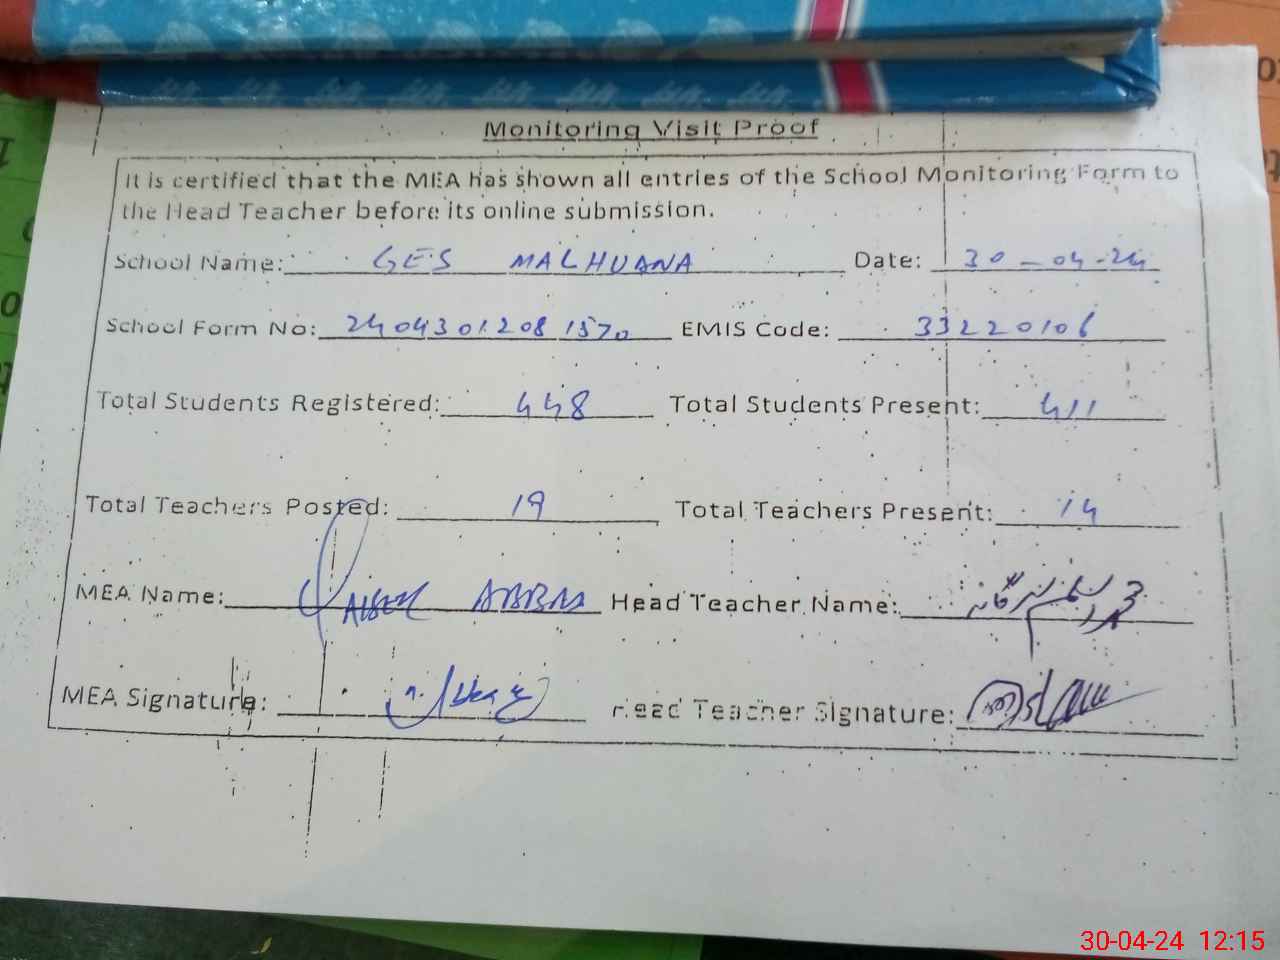 Monitoring Visit Proof
It is certified that the MEA has shown all entries of the School Monitoring Form to
the Head Teacher before its online submission.
School Name: GES MALHUANA Date: 30-04-24
School Form No: 2404301208 1570 EMIS Code: 33220106
Total Students Registered: 448 Total Students Present: 411
Total Teachers Posted: 19 Total Teachers Present: 14
MEA Name: ABBAS Head Teacher Name:
MEA Signature: Head Teacher Signature:
30-04-24 12:15